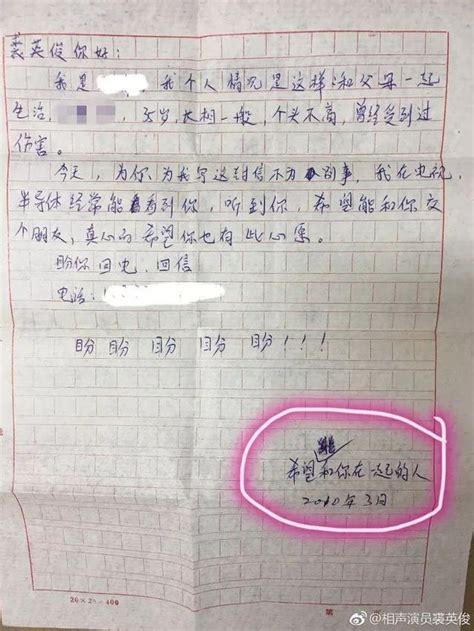 裘英俊你好：
我是 我个人情况是这样：和父母一起
生活， ，35岁，大相一般，个头不高，曾经受到过
伤害。
今天，为你为我写这封信不为别事，我在电视，
半导体经常能看到你，听到你，希望能和你交
个朋友，真心的希望你也有此心愿。
盼你回电.回信
电话：
盼 盼 盼 盼 盼！！！
希望和你在一起的人
2010年3日
20×20=400
第
@相声演员裘英俊